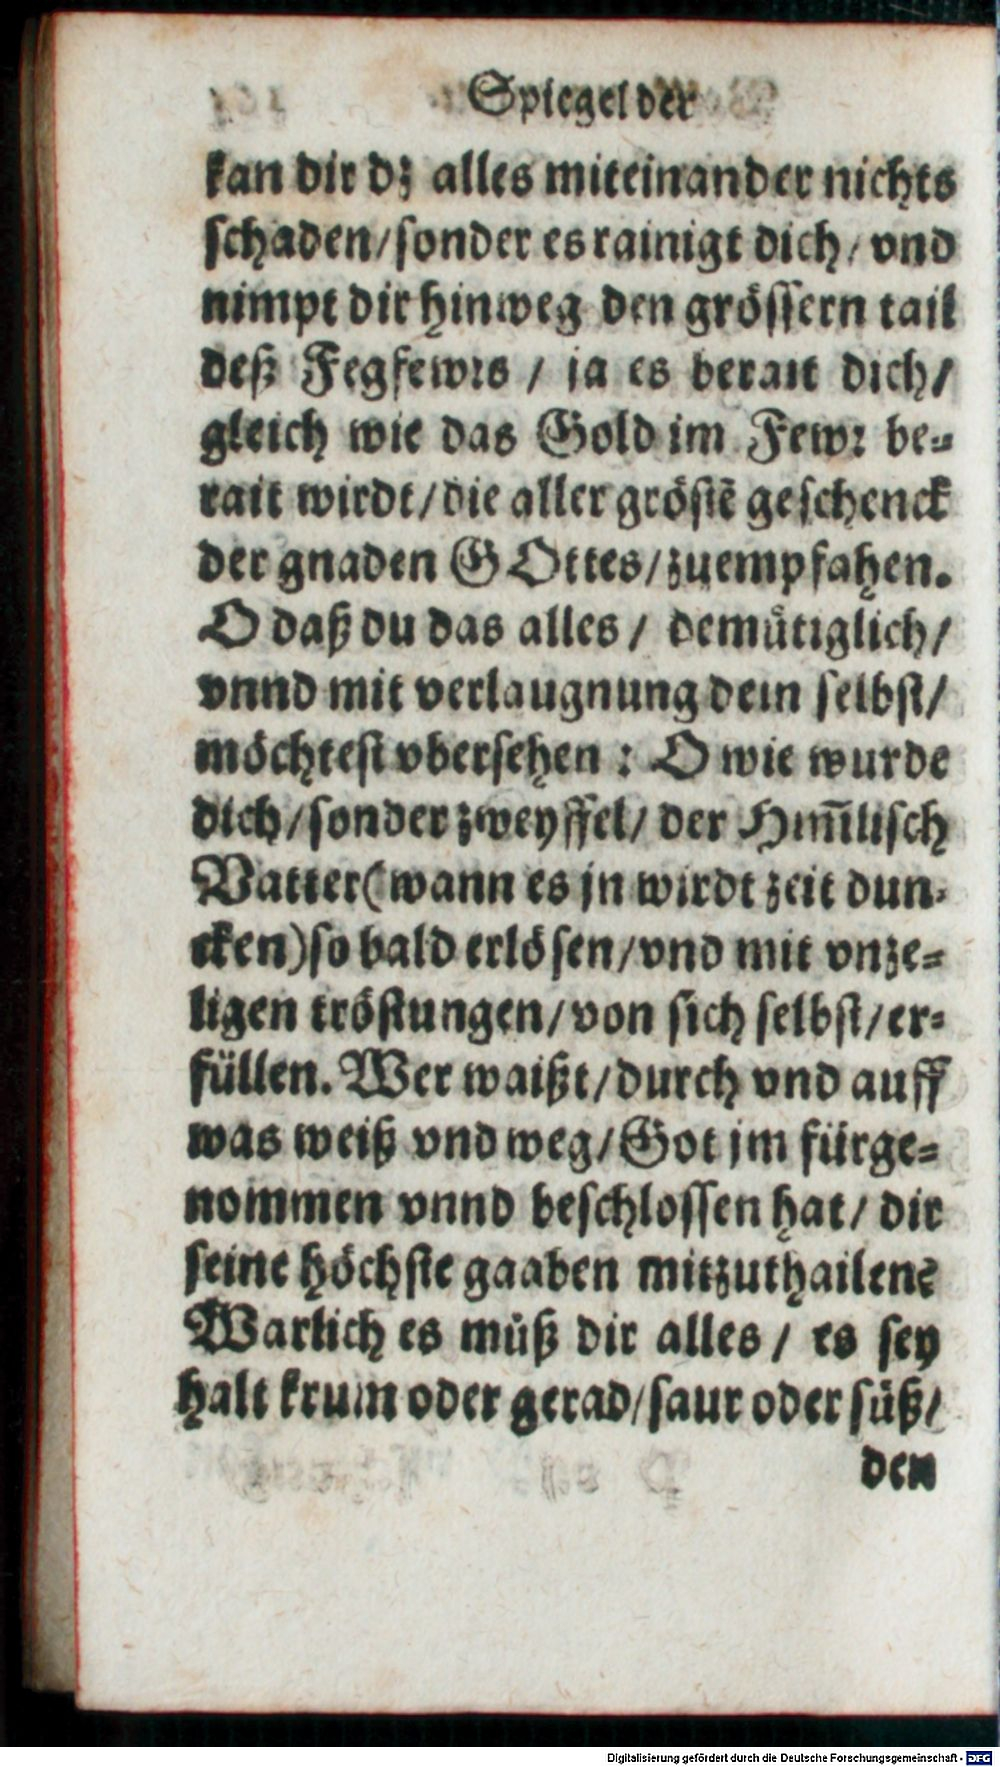 Spiegel der
kan dir dz alles miteinander nichts
schaden/sonder es rainigt dich/ vnd
nimpt dir hinweg den grössern tail
deß Fegfewrs / ja es berait dich/
gleich wie das Gold im Fewr be-
rait wirdt/die aller gröstẽ geschenck
der gnaden GOttes/zuempfahen.
O daß du das alles / demütiglich/
vnnd mit verlaugnung dein selbst/
möchtest vbersehen : O wie wurde
dich/sonder zweyffel/ der Him̃lisch
Vatter(wann es jn wirdt zeit dun-
cken)so bald erlösen/vnd mit vnze-
ligen tröstungen/von sich selbst/er-
füllen. Wer waißt/durch vnd auff
was weiß vnd weg/Got jm fürge-
nommen vnnd beschlossen hat/ dir
seine höchste gaaben mitzuthailen?
Warlich es müß dir alles / es sey
halt krum oder gerad/saur oder süß/
den
Digitalisierung gefördert durch die Deutsche Forschungsgemeinschaft - DFG